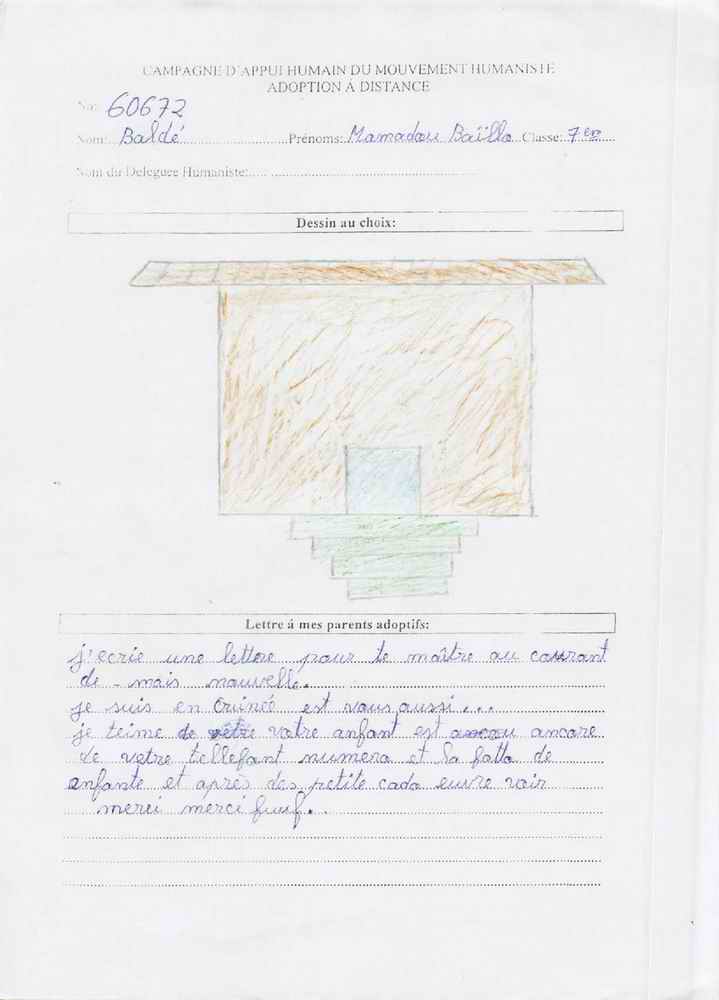 CAMPAGNE D'APPUI HUMAIN DU MOUVEMENT HUMANISTE
ADOPTION Á DISTANCE
No: 60672
Nom: Baldé Prénoms: Mamadou Baïllo Classe: 7 em
Nom du Deleguee Humaniste:
Dessin au choix:
Lettre á mes parents adoptifs:
j'ecrie une lettere pour te maître au courant
de - mais nauvelle.
je suis en Guinéé est vous aussi...
je teime de vetre vatre anfant est ancore
de vetre tellefant numero et la fotto de
enfante et après des petite cado euvre voir
merci merci